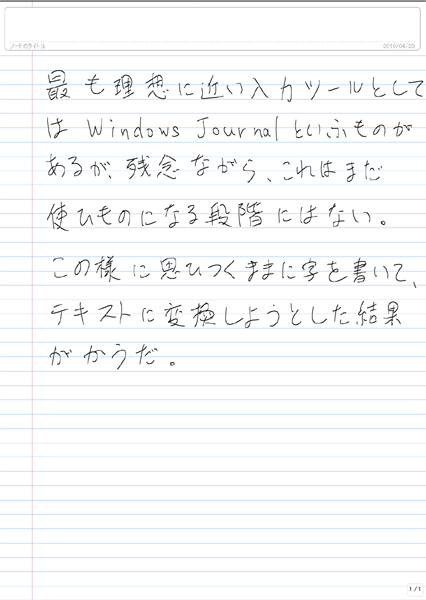 ノートのタイトル
2010/04/23
最も理想に近い入力ツールとして
は Windows Journalといふものが
あるが、残念ながら、これはまだ
使ひものになる段階にはない。
この様に思ひつくままに字を書いて、
テキストに変換しようとした結果
がかうだ。
1 / 1